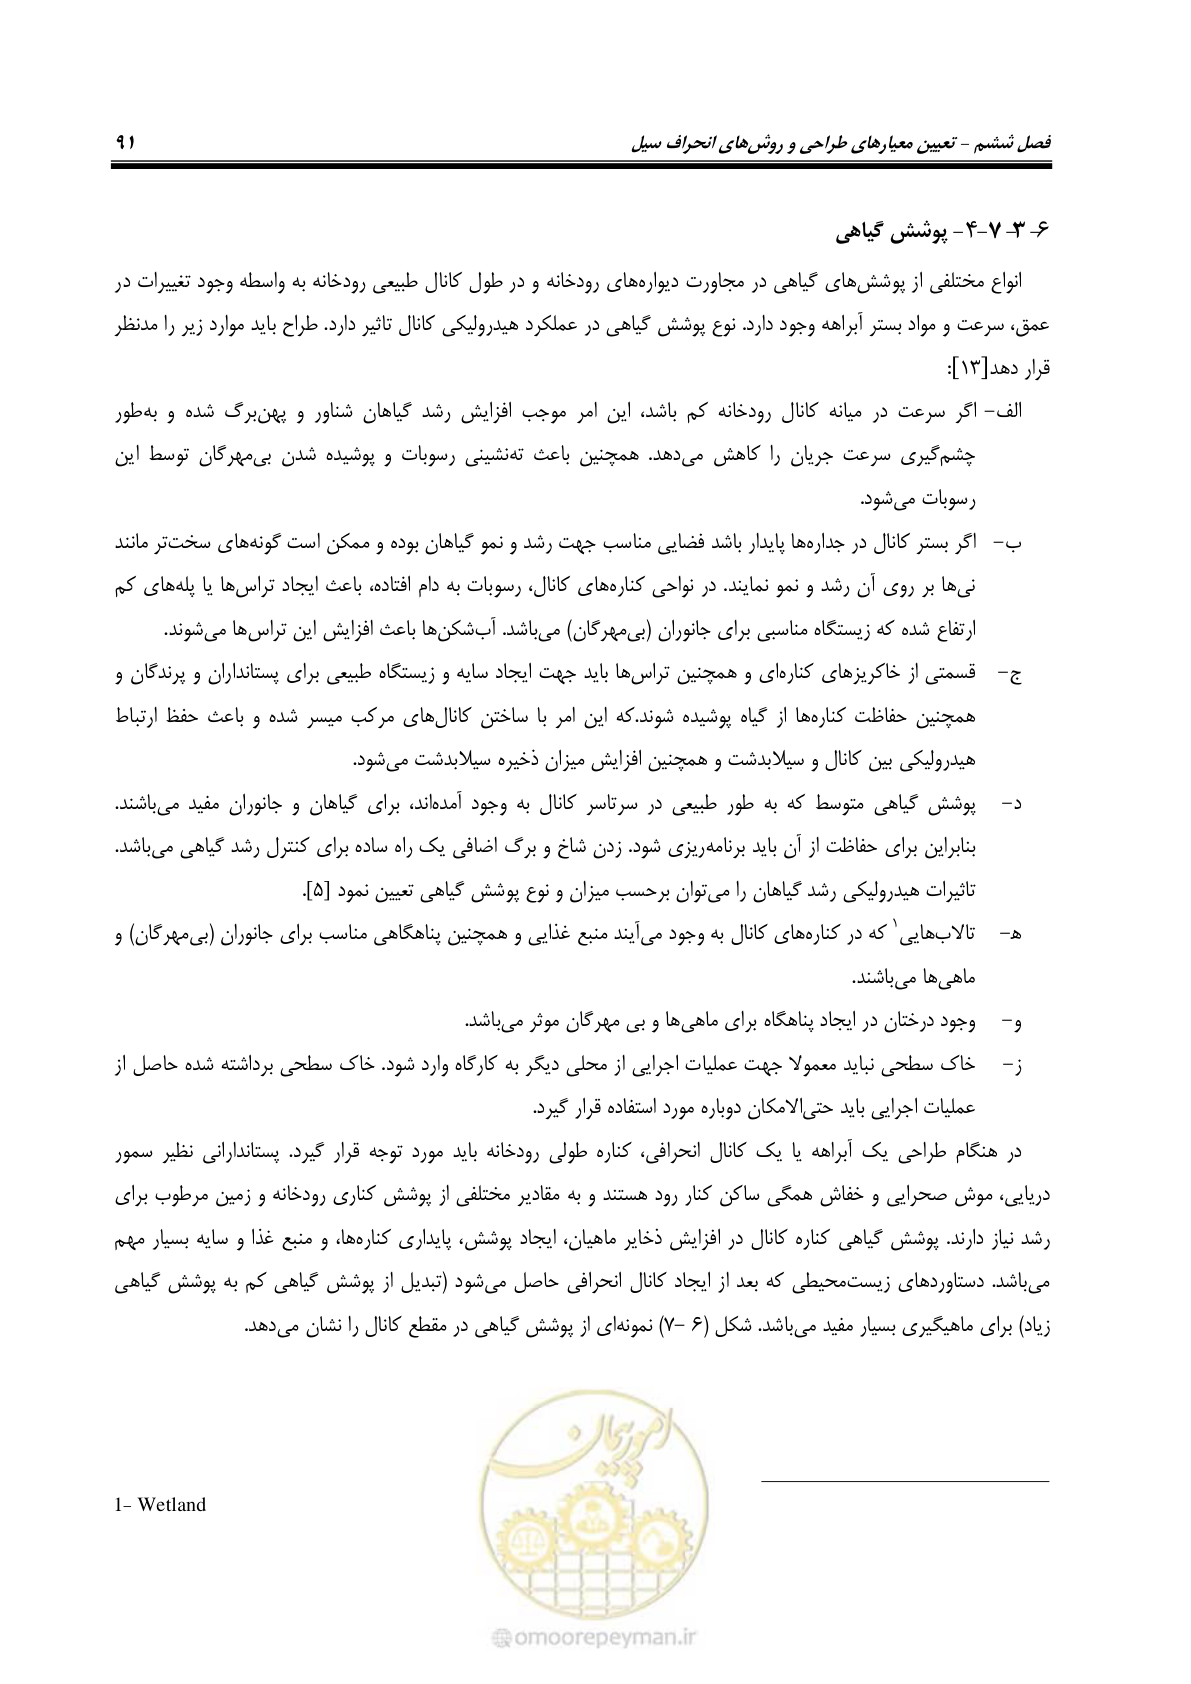 فصل ششم – تعیین معیارهای طراحی و روش‌های انحراف سیل ۹۱
۶-۳-۷-۴- پوشش گیاهی
انواع مختلفی از پوشش‌های گیاهی در مجاورت دیواره‌های رودخانه و در طول کانال طبیعی رودخانه به واسطه وجود تغییرات در
عمق، سرعت و مواد بستر آبراهه وجود دارد. نوع پوشش گیاهی در عملکرد هیدرولیکی کانال تاثیر دارد. طراح باید موارد زیر را مدنظر
قرار دهد[۱۳]:
الف- اگر سرعت در میانه کانال رودخانه کم باشد، این امر موجب افزایش رشد گیاهان شناور و پهن‌برگ شده و به‌طور
چشم‌گیری سرعت جریان را کاهش می‌دهد. همچنین باعث ته‌نشینی رسوبات و پوشیده شدن بی‌مهرگان توسط این
رسوبات می‌شود.
ب- اگر بستر کانال در جداره‌ها پایدار باشد فضایی مناسب جهت رشد و نمو گیاهان بوده و ممکن است گونه‌های سخت‌تر مانند
نی‌ها بر روی آن رشد و نمو نمایند. در نواحی کناره‌های کانال، رسوبات به دام افتاده، باعث ایجاد تراس‌ها یا پله‌های کم
ارتفاع شده که زیستگاه مناسبی برای جانوران (بی‌مهرگان) می‌باشد. آب‌شکن‌ها باعث افزایش این تراس‌ها می‌شوند.
ج- قسمتی از خاکریزهای کناره‌ای و همچنین تراس‌ها باید جهت ایجاد سایه و زیستگاه طبیعی برای پستانداران و پرندگان و
همچنین حفاظت کناره‌ها از گیاه پوشیده شوند.که این امر با ساختن کانال‌های مرکب میسر شده و باعث حفظ ارتباط
هیدرولیکی بین کانال و سیلابدشت و همچنین افزایش میزان ذخیره سیلابدشت می‌شود.
د- پوشش گیاهی متوسط که به طور طبیعی در سرتاسر کانال به وجود آمده‌اند، برای گیاهان و جانوران مفید می‌باشند.
بنابراین برای حفاظت از آن باید برنامه‌ریزی شود. زدن شاخ و برگ اضافی یک راه ساده برای کنترل رشد گیاهی می‌باشد.
تاثیرات هیدرولیکی رشد گیاهان را می‌توان برحسب میزان و نوع پوشش گیاهی تعیین نمود [۵].
ه- تالاب‌هایی۱ که در کناره‌های کانال به وجود می‌آیند منبع غذایی و همچنین پناهگاهی مناسب برای جانوران (بی‌مهرگان) و
ماهی‌ها می‌باشند.
و- وجود درختان در ایجاد پناهگاه برای ماهی‌ها و بی مهرگان موثر می‌باشد.
ز- خاک سطحی نباید معمولا جهت عملیات اجرایی از محلی دیگر به کارگاه وارد شود. خاک سطحی برداشته شده حاصل از
عملیات اجرایی باید حتی‌الامکان دوباره مورد استفاده قرار گیرد.
در هنگام طراحی یک آبراهه یا یک کانال انحرافی، کناره طولی رودخانه باید مورد توجه قرار گیرد. پستاندارانی نظیر سمور
دریایی، موش صحرایی و خفاش همگی ساکن کنار رود هستند و به مقادیر مختلفی از پوشش کناری رودخانه و زمین مرطوب برای
رشد نیاز دارند. پوشش گیاهی کناره کانال در افزایش ذخایر ماهیان، ایجاد پوشش، پایداری کناره‌ها، و منبع غذا و سایه بسیار مهم
می‌باشد. دستاوردهای زیست‌محیطی که بعد از ایجاد کانال انحرافی حاصل می‌شود (تبدیل از پوشش گیاهی کم به پوشش گیاهی
زیاد) برای ماهیگیری بسیار مفید می‌باشد. شکل (۶ -۷) نمونه‌ای از پوشش گیاهی در مقطع کانال را نشان می‌دهد.
امور پیمان
1- Wetland
omoorepeyman.ir